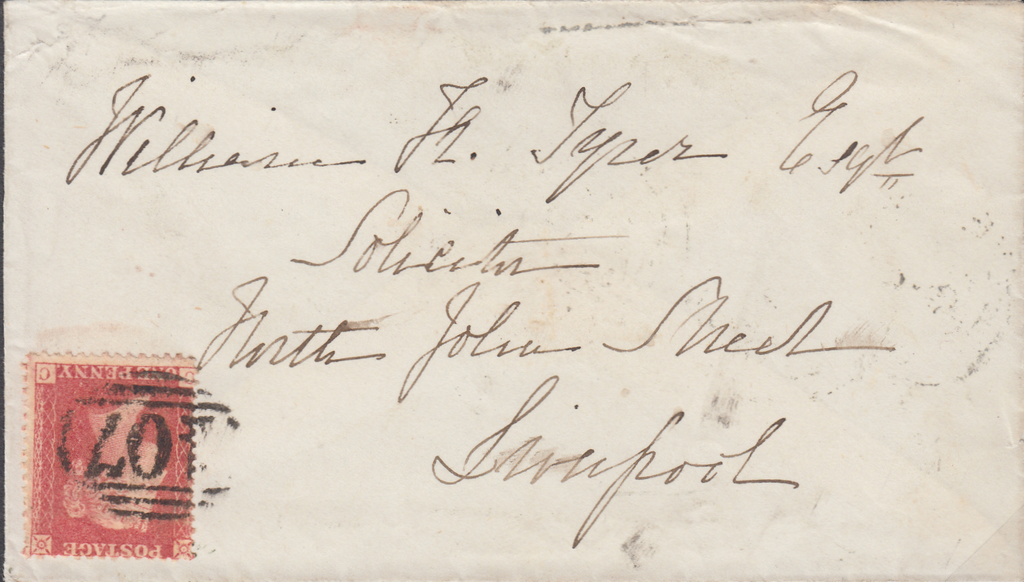 William H. Tyrer Esqr.
Solicitor
North John Street
Liverpool
ONE PENNY
C
POSTAGE